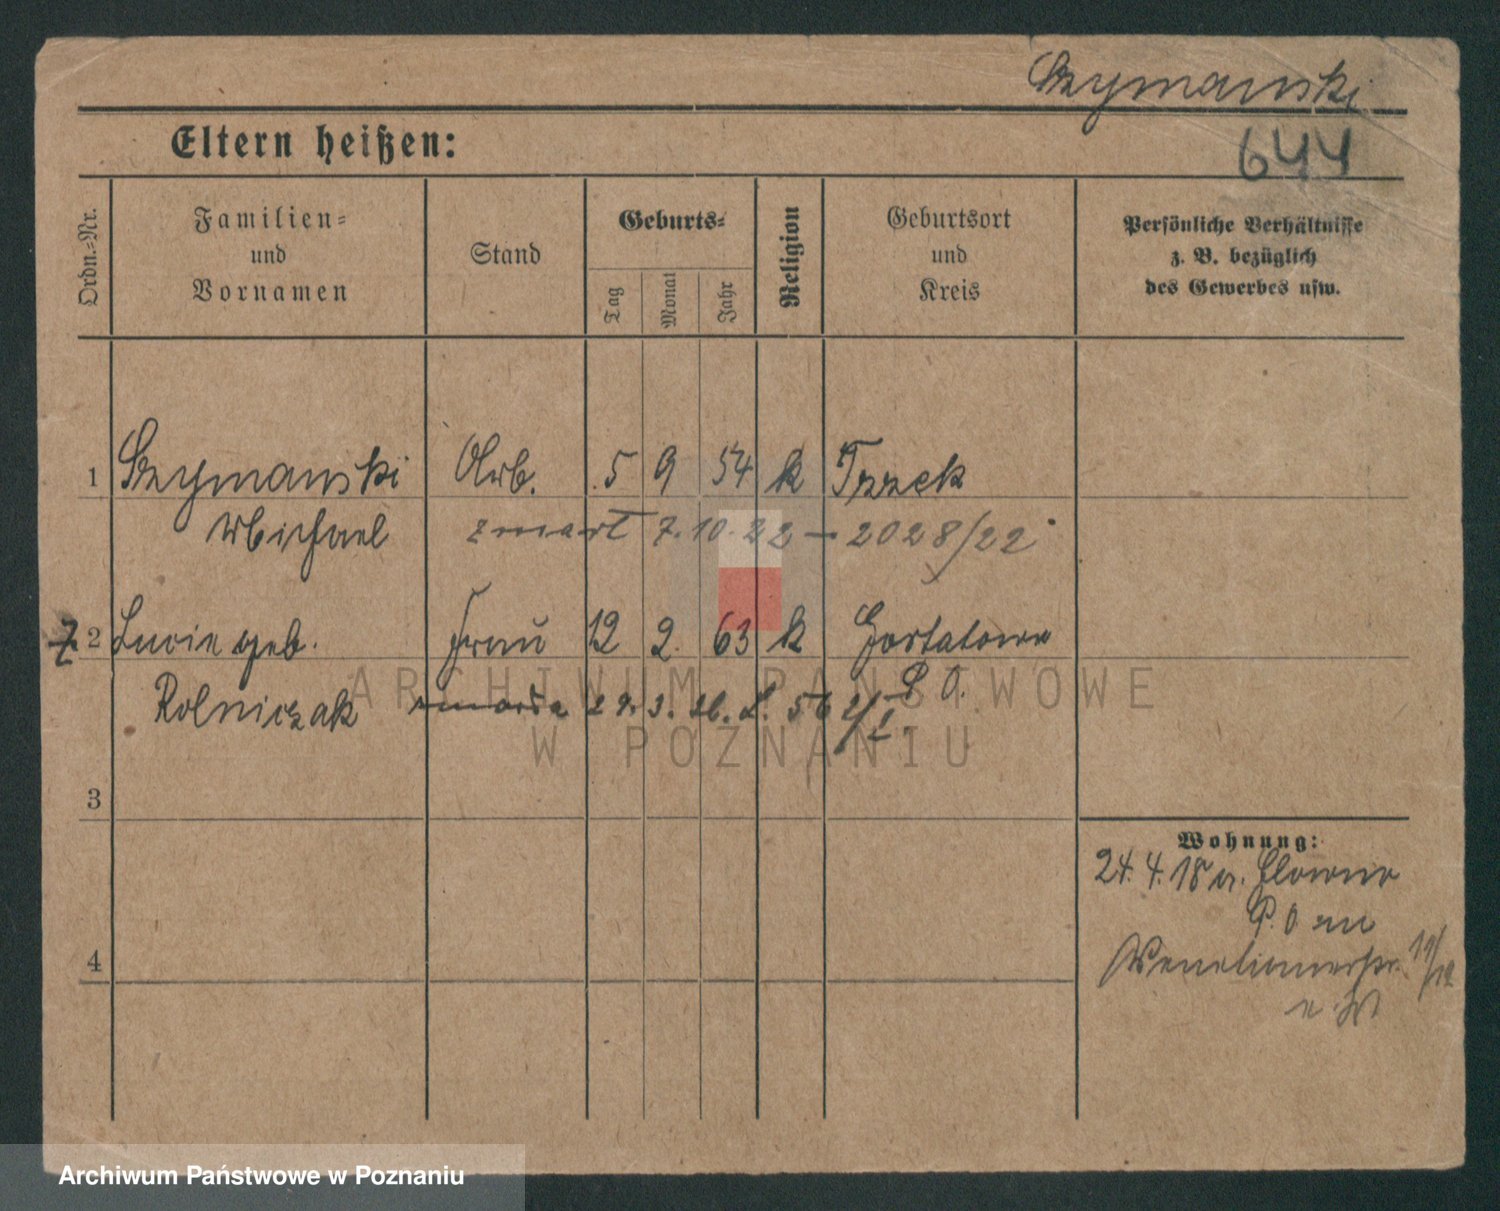 Szymanski
Eltern heißen:
644
Ordn.=Nr.
Familien=
und
Vornamen
Stand
Geburts=
Tag
Monat
Jahr
Religion
Geburtsort
und
Kreis
Persönliche Verhältnisse
z. B. bezüglich
des Gewerbes usw.
1 Szymanski Arb. 5 9 54 k Trzek
Michael zmarł 7.10.22 – 2028/22
2 geb. Frau 12 2. 63 k Gortatowo
Rolniczak zmarła 29. 3. 26. P. O.
3
4
Wohnung:
24. 4. 18 n.
P. O.
19/12
ARCHIWUM PAŃSTWOWE
W POZNANIU
Archiwum Państwowe w Poznaniu